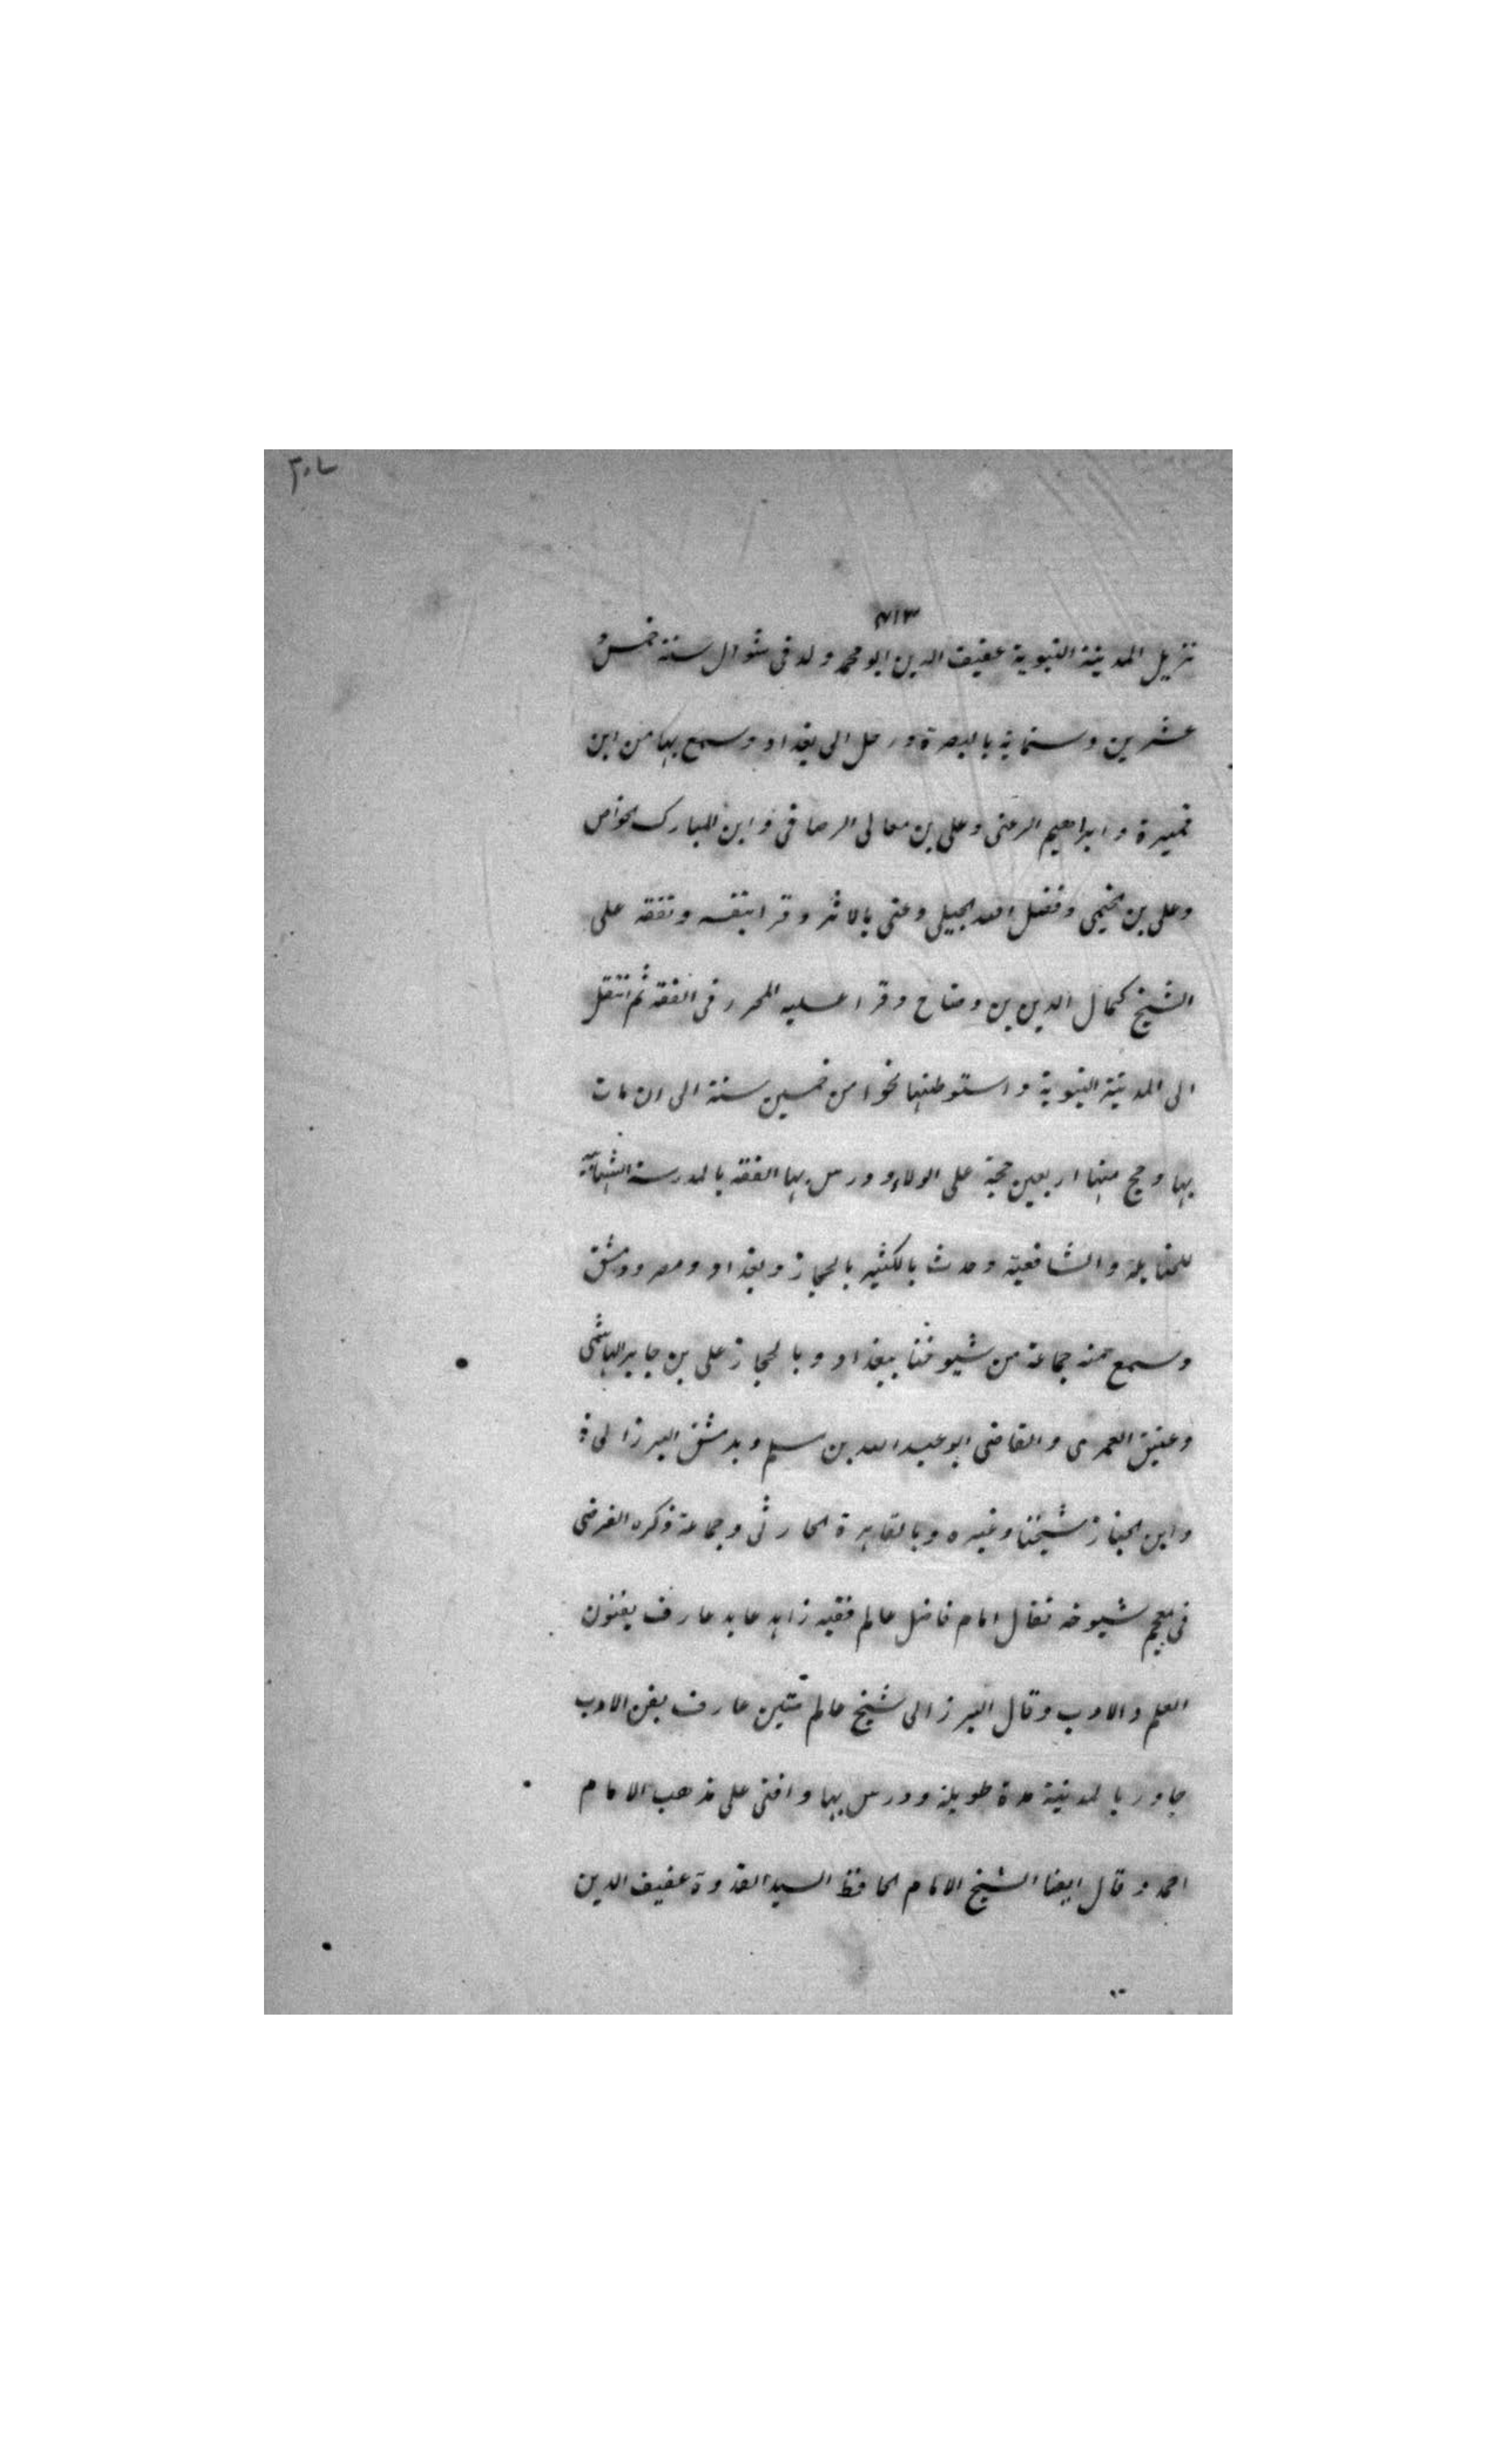 نزيل المدينة النبوية عفيف الدين ابو محمد ولد فى شوال سنة خمس و
عشرين وستماية بالبصرة ورحل الى بغداد وسمع بها من ابن
قميرة وابراهيم الرعنى وعلى بن معالى الرصافى وابن المبارك الخواص
وعلى بن الخيمى وفضل الله الجيلى وعنى بالاثر وقرا بنفسه وتفقه على
الشيخ كمال الدين بن وضاح وقرا عليه المحرر فى الفقه ثم انتقل
الى المدينة النبوية واستوطنها نحوا من خمسين سنة الى ان مات
بها وحج منها اربعين حجة على الولاء ودرس بها الفقه بالمدرسة الشهابية
للحنابلة والشافعية وحدث بالكثير بالحجاز وبغداد ومصر ودمشق
وسمع منه جماعة من شيوخنا ببغداد وبالحجاز على بن جابر الهاشمى
وعتيق العمرى والقاضى ابو عبد الله بن مسلم وبدمشق البرزالى
وابن الخباز شيخنا وغيره وبالقاهرة الحارثى وجماعة ذكره الفرضى
فى معجم شيوخه فقال امام فاضل عالم فقيه زاهد عابد عارف بفنون
العلم والادب وقال البرزالى شيخ عالم متين عارف بفن الادب
جاور بالمدينة مدة طويلة ودرس بها وافتى على مذهب الامام
احمد وقال ايضا الشيخ الامام الحافظ السيد القدوة عفيف الدين